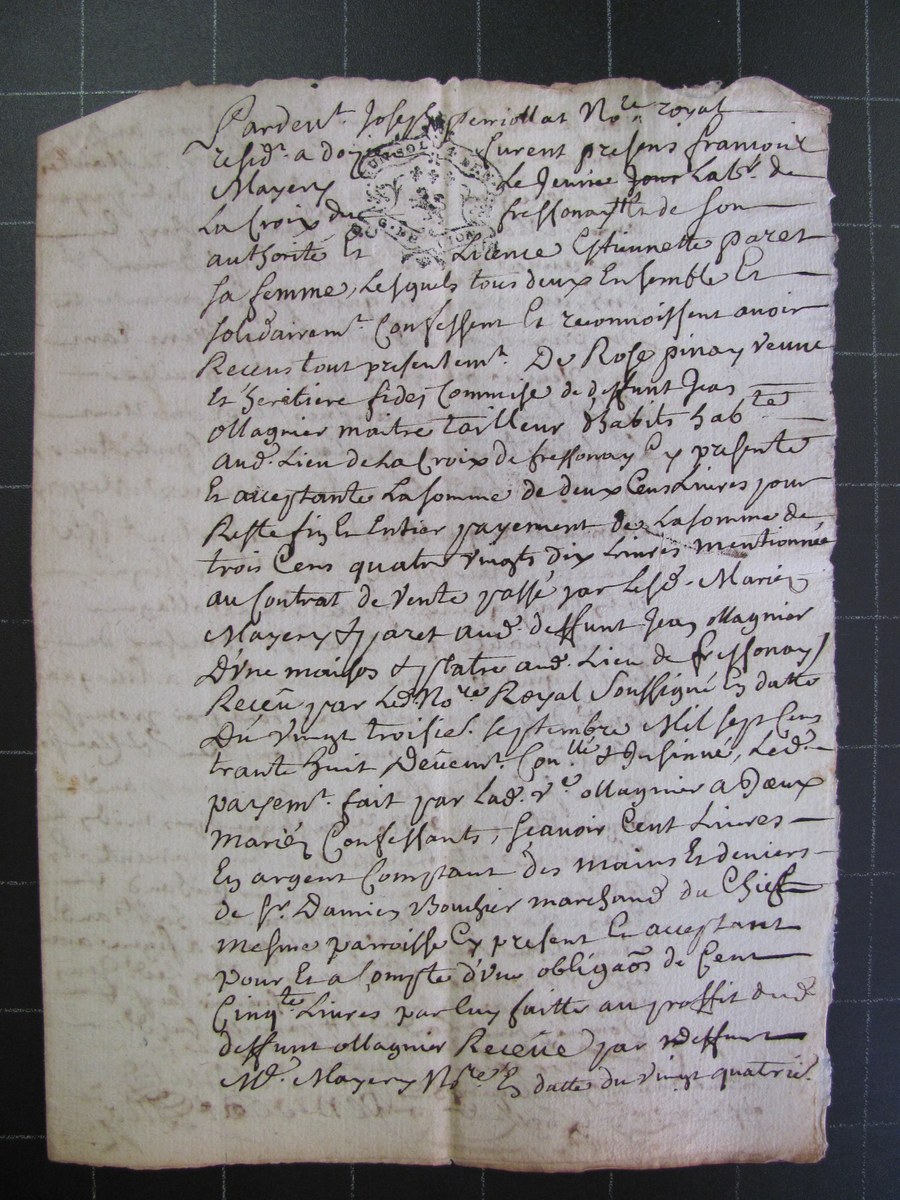 Pardevt. Joseph perriollat Nore. royal
residt. a furent presens francois
Mayery Le Jeune Labr. de
La Croix du fressonay de son
authorité Et Licence Estiennette paret
sa femme, Lesquels tous deux Ensemble Et
solidairemt. Confessent Et reconnoissent avoir
Receus tout presentemt. De Rose pinay veuve
Et heretiere fidei Commise de deffunt Jean
ollagnier maitre tailleur d'habits habte.
aud. Lieu de La Croix de fressonay Cy presente
Et acceptante La somme de deux Cens Livres pour
Reste fin Et Entier payement de La somme de
trois Cens quatre vingts dix Livres mentionnée
au Contrat de vente passé par Lesd. Mariés
Mayery & paret aud. deffunt Jean ollagnier
D'une maison & aud. Lieu de fressonay
Receu par Led. Nore. Royal Soussigné En datte
Du vingt troisie. septembre Mil sept Cens
trante huit Deuemt. Conllé. & Insinué, Led.
payemt. fait par Lad. ve. ollagnier a Iceux
mariés Confessants, sçavoir Cent Livres
En argent Comptant des mains Et deniers
de Sr. Damien Bouchier marchand du Chief
mesme parroisse Cy present Et acceptant
pour Et a Compte d'une obligaōn de Cent
Cinqte. Livres par luy faitte au proffit dud.
deffunt ollagnier Receüe par deffunt
Me. Mayery Nore. En datte du vingt quatrie.